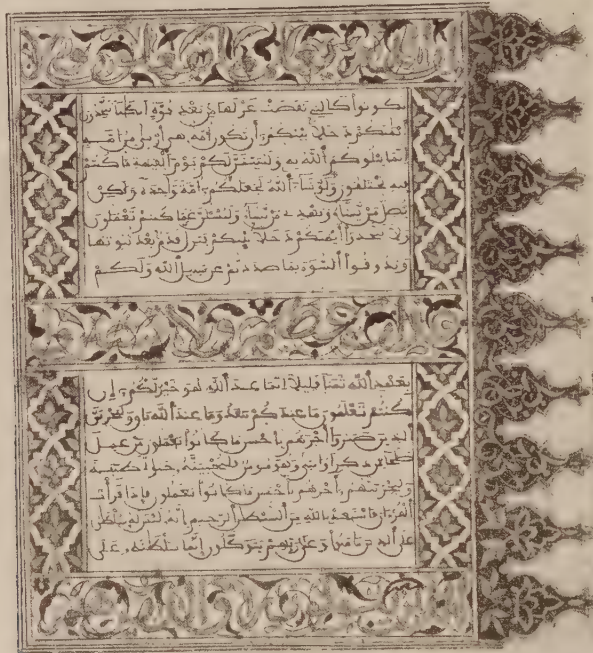 تكونوا كالتي نقضت غزلها من بعد قوة أنكثا تتخذون
أيمنكم دخلا بينكم أن تكون أمة هي أربى من أمة
إنما يبلوكم الله به وليبينن لكم يوم القيمة ما كنتم
فيه تختلفون ولو شاء الله لجعلكم أمة وحدة ولكن
يضل من يشاء ويهدي من يشاء ولتسئلن عما كنتم تعملون
ولا تتخذوا أيمنكم دخلا بينكم فتزل قدم بعد ثبوتها
وتذوقوا السوء بما صددتم عن سبيل الله ولكم
عذاب عظيم ولا تشتروا
بعهد الله ثمنا قليلا إنما عند الله هو خير لكم إن
كنتم تعلمون ما عندكم ينفد وما عند الله باق وليجزين
الذين صبروا أجرهم بأحسن ما كانوا يعملون من عمل
صلحا من ذكر أو أنثى وهو مومن فلنحيينه حيوة طيبة
ولنجزينهم أجرهم بأحسن ما كانوا يعملون فإذا قرأت
القرءان فاستعذ بالله من الشيطن الرجيم إنه ليس له سلطن
على الذين ءامنوا وعلى ربهم يتوكلون إنما سلطنه على